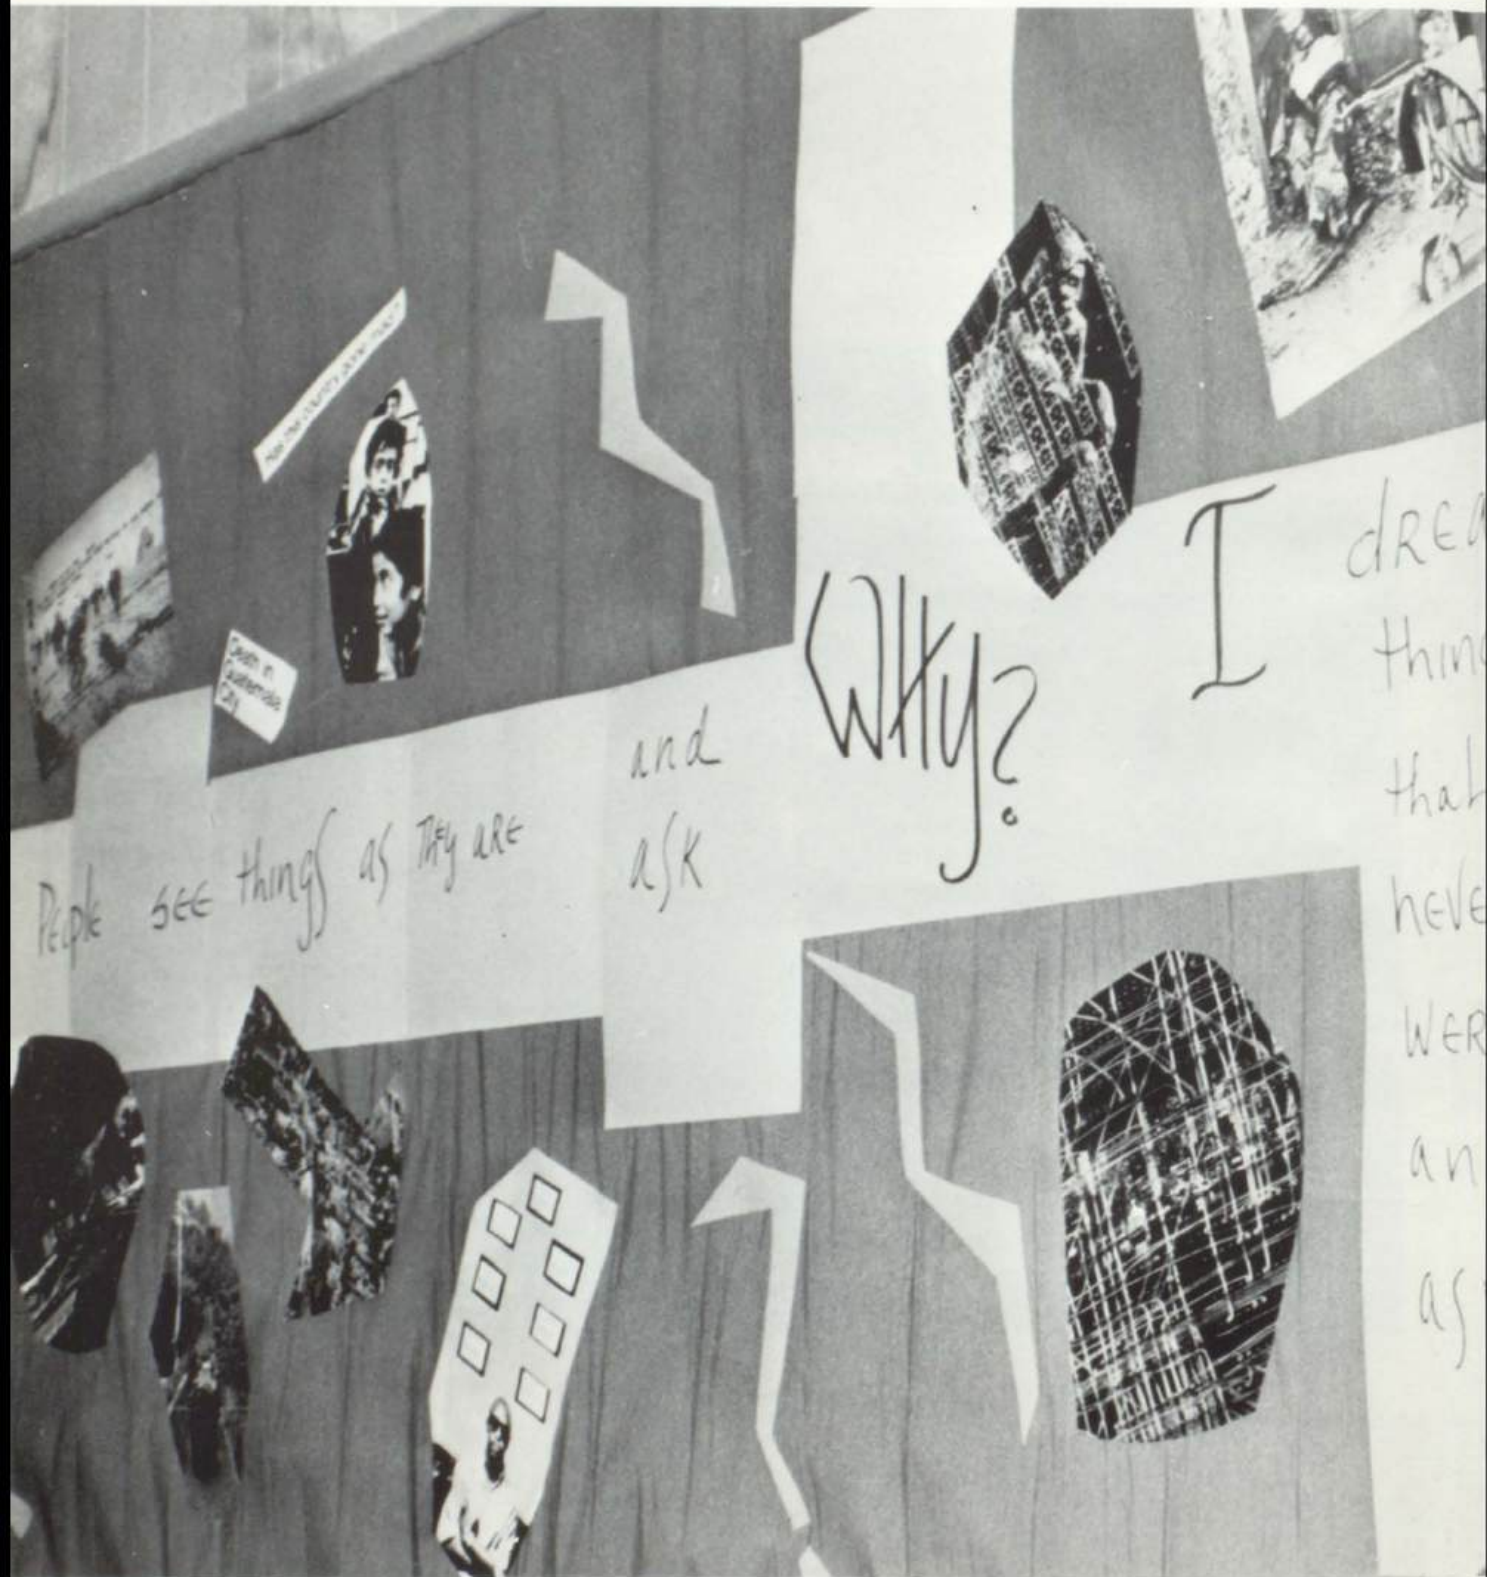 Death in
Guatemala
City
People see things as They are
and
ask
WHy?
I drea
thing
that
neve
wer
an
as